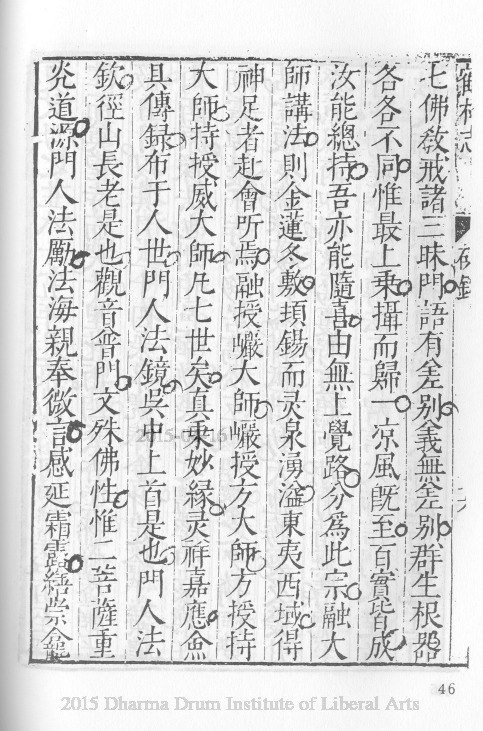 七佛敎戒諸三昧門語有差别義無差别群生根器
各各不同惟最上乗攝而歸一凉風旣至百實皆成
汝能總持吾亦能隨喜由無上覺路分爲此宗融大
師講法則金蓮冬敷頓錫而灵泉湧溢東夷西域得
神足者赴會听焉融授巗大師巗授方大師方授持
大師持授威大師凡七世矣真乗妙縁灵祥嘉應僉
具傳録布于人世門人法鏡吳中上首是也門人法
欽徑山長老是也觀音普門文殊佛性惟二菩薩重
光道源門人法勵法海親奉微言感延霜露繕崇龕
46
2015-04-16
2015 Dharma Drum Institute of Liberal Arts